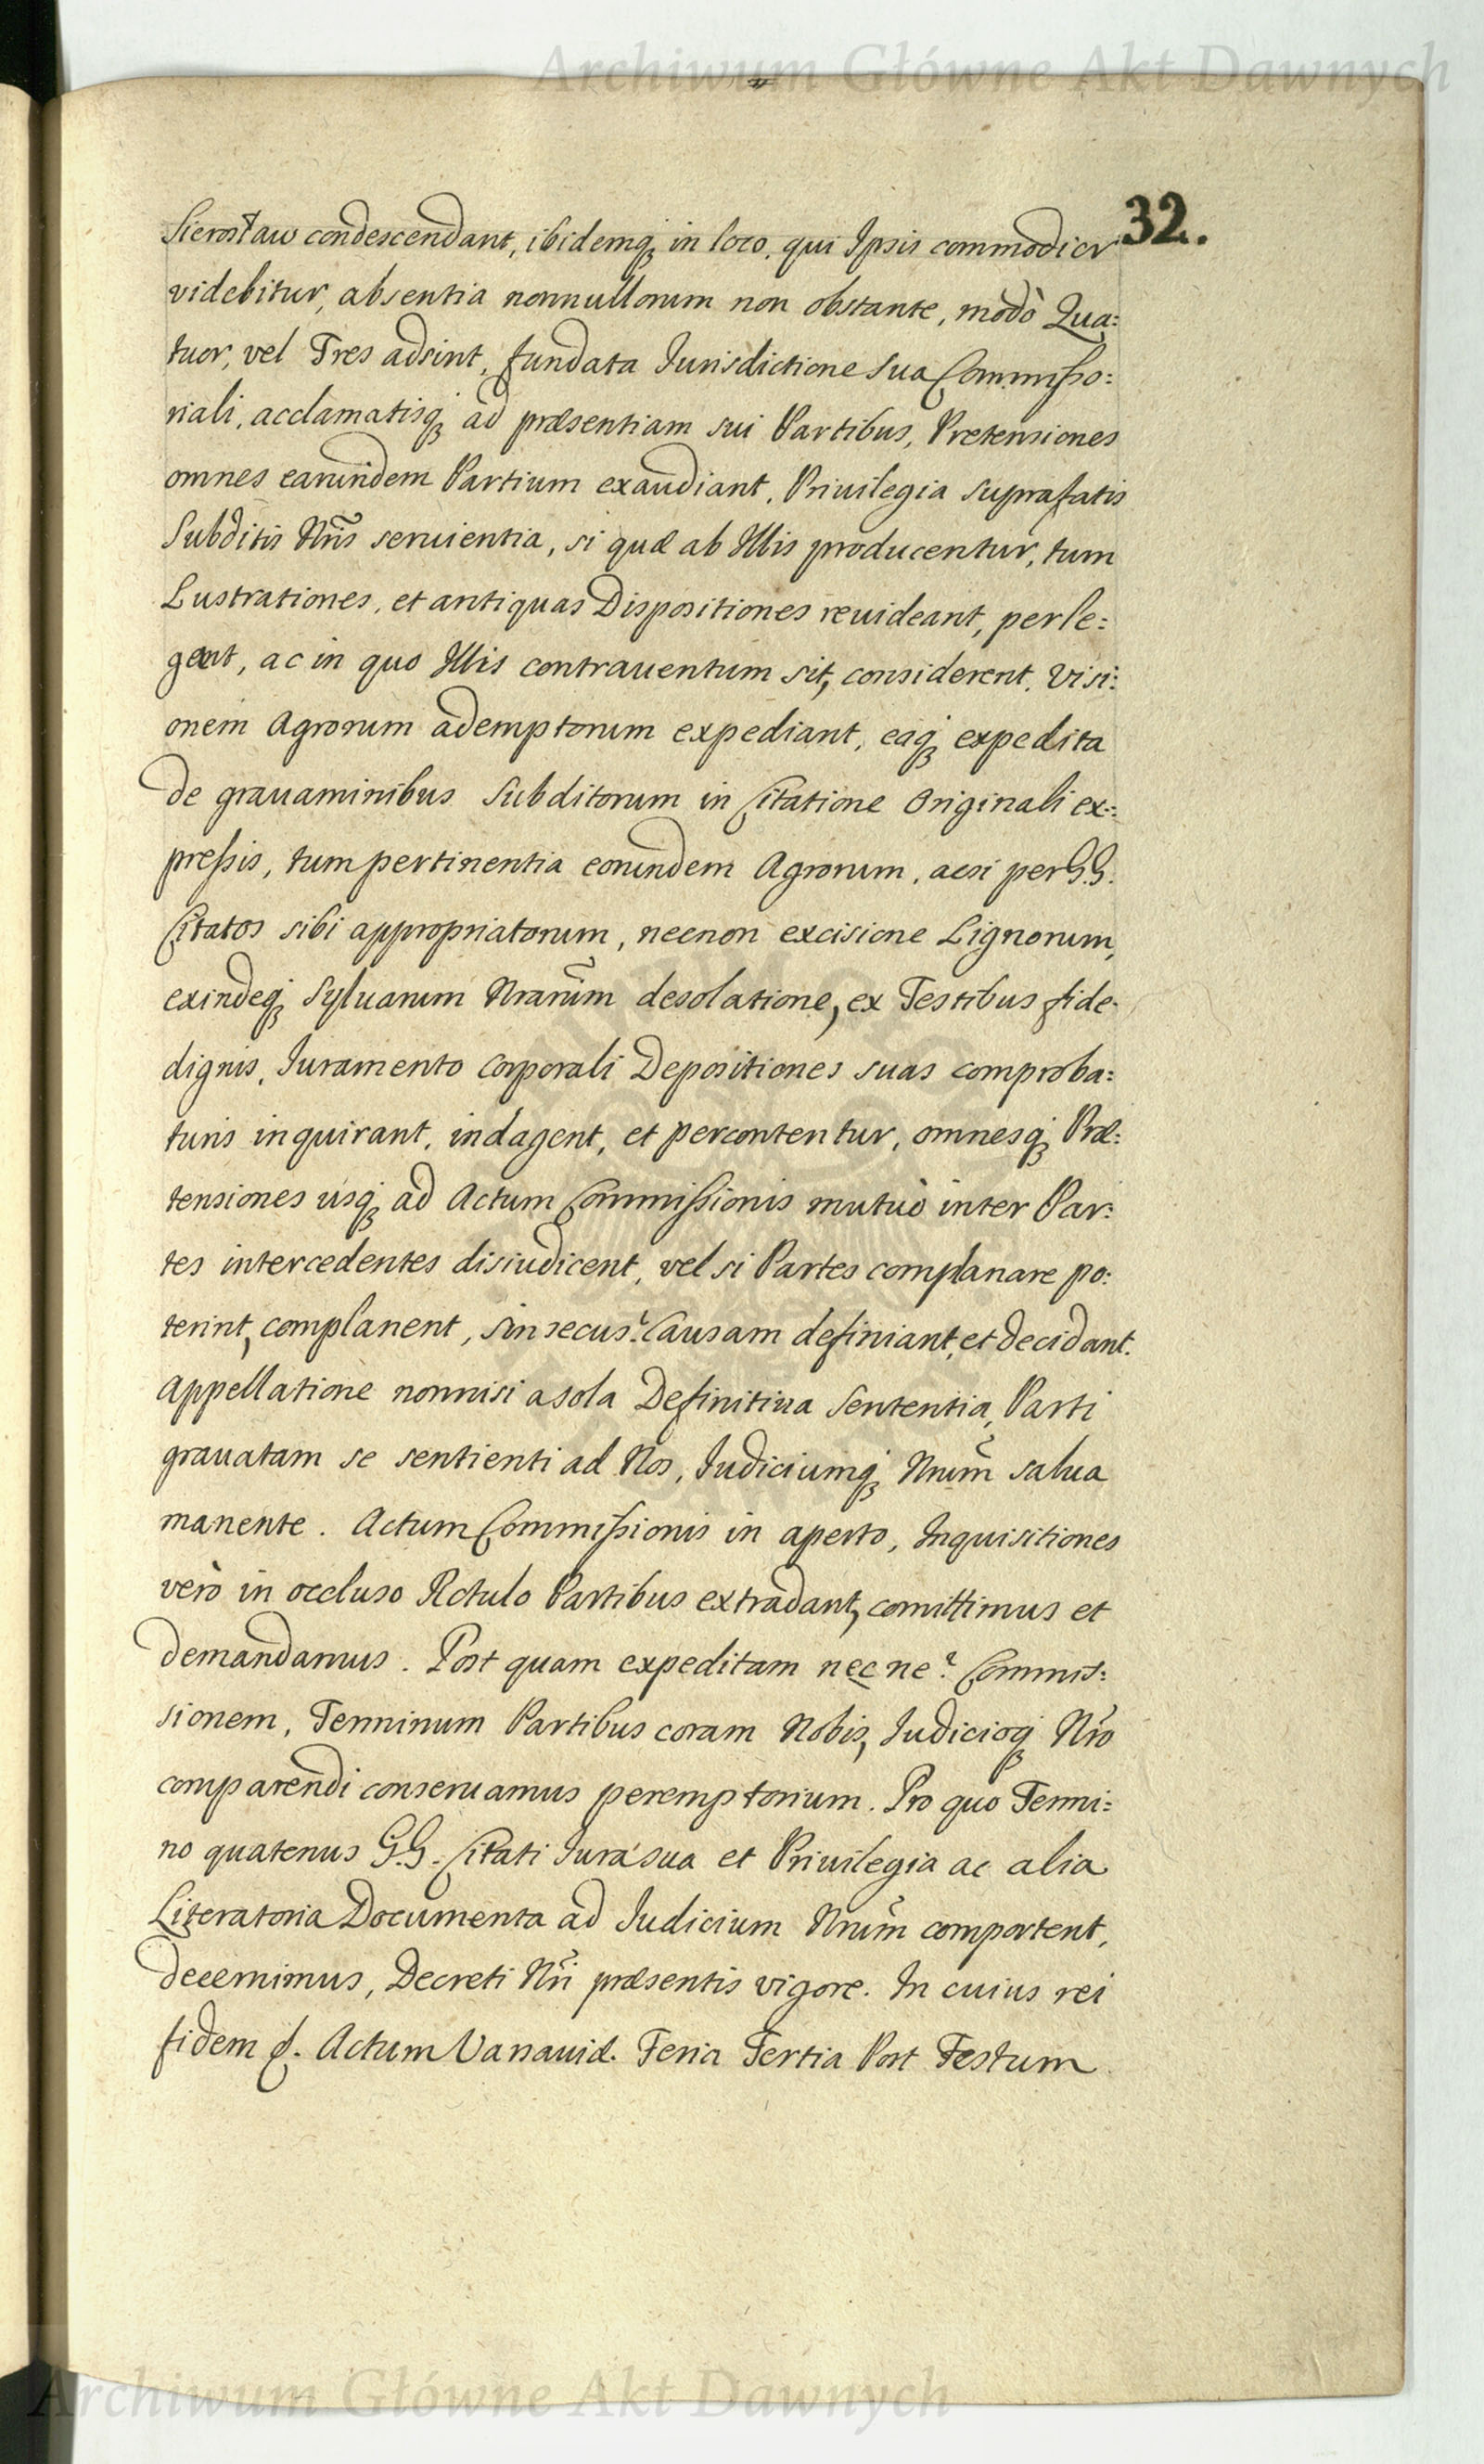 Archiwum Główne Akt Dawnych
32.
Sierosław condescendant, ibidemq₃ in loco, qui Ipsis commodior
videbitur, absentia nonnullorum non obstante, modò Qua:
tuor, vel Tres adsint, fundata Iurisdictione sua Commisso:
riali, acclamatisq₃ ad præsentiam sui Partibus, Pretensiones
omnes earundem Partium exaudiant, Priuilegia suprafatis
Subditis Nr̃is seruientia, si quæ ab Illis producentur, tum
Lustrationes, et antiquas Dispositiones reuideant, perle:
gant, ac in quo Illis contrauentum sit, considerent, Visi:
onem Agrorum ademptorum expediant, eaq₃ expedita
de grauaminibus Subditorum in Citatione Originali ex:
pressis, tum pertinentia eorundem Agrorum, acsi per G.G.
Citatos sibi appropriatorum, necnon excisione Lignorum,
exindeq₃ Syluarum Nrarum̃ desolatione, ex Testibus fide-
dignis, Iuramento corporali Depositiones suas comproba:
turis inquirant, indagent, et percontentur, omnesq₃ Præ:
tensiones usq₃ ad Actum Commissionis mutuò inter Par:
tes intercedentes disiudicent, vel si Partes complanare po:
terint, complanent, sin secus? Causam definiant, et decidant.
Appellatione nonnisi a sola Definitiua Sententia, Parti
grauatam se sentienti ad Nos, Iudiciumq₃ Nrum̃ salua
manente. Actum Commissionis in aperto, Inquisitiones
verò in occluso Rotulo Partibus extradant, comittimus et
demandamus. Post quam expeditam necne? Commis:
sionem, Terminum Partibus coram Nobis, Iudicioq₃ Nr̃o
comparendi conseruamus peremptorium. Pro quo Termi:
no quatenus G.G. Citati Iura sua et Priuilegia ac alia
Literatoria Documenta ad Iudicium Nrum̃ comportent,
decernimus, Decreti Nr̃i præsentis vigore. In cuius rei
fidem &. Actum Varsauiæ. Feria Tertia Post Festum
Archiwum Główne Akt Dawnych